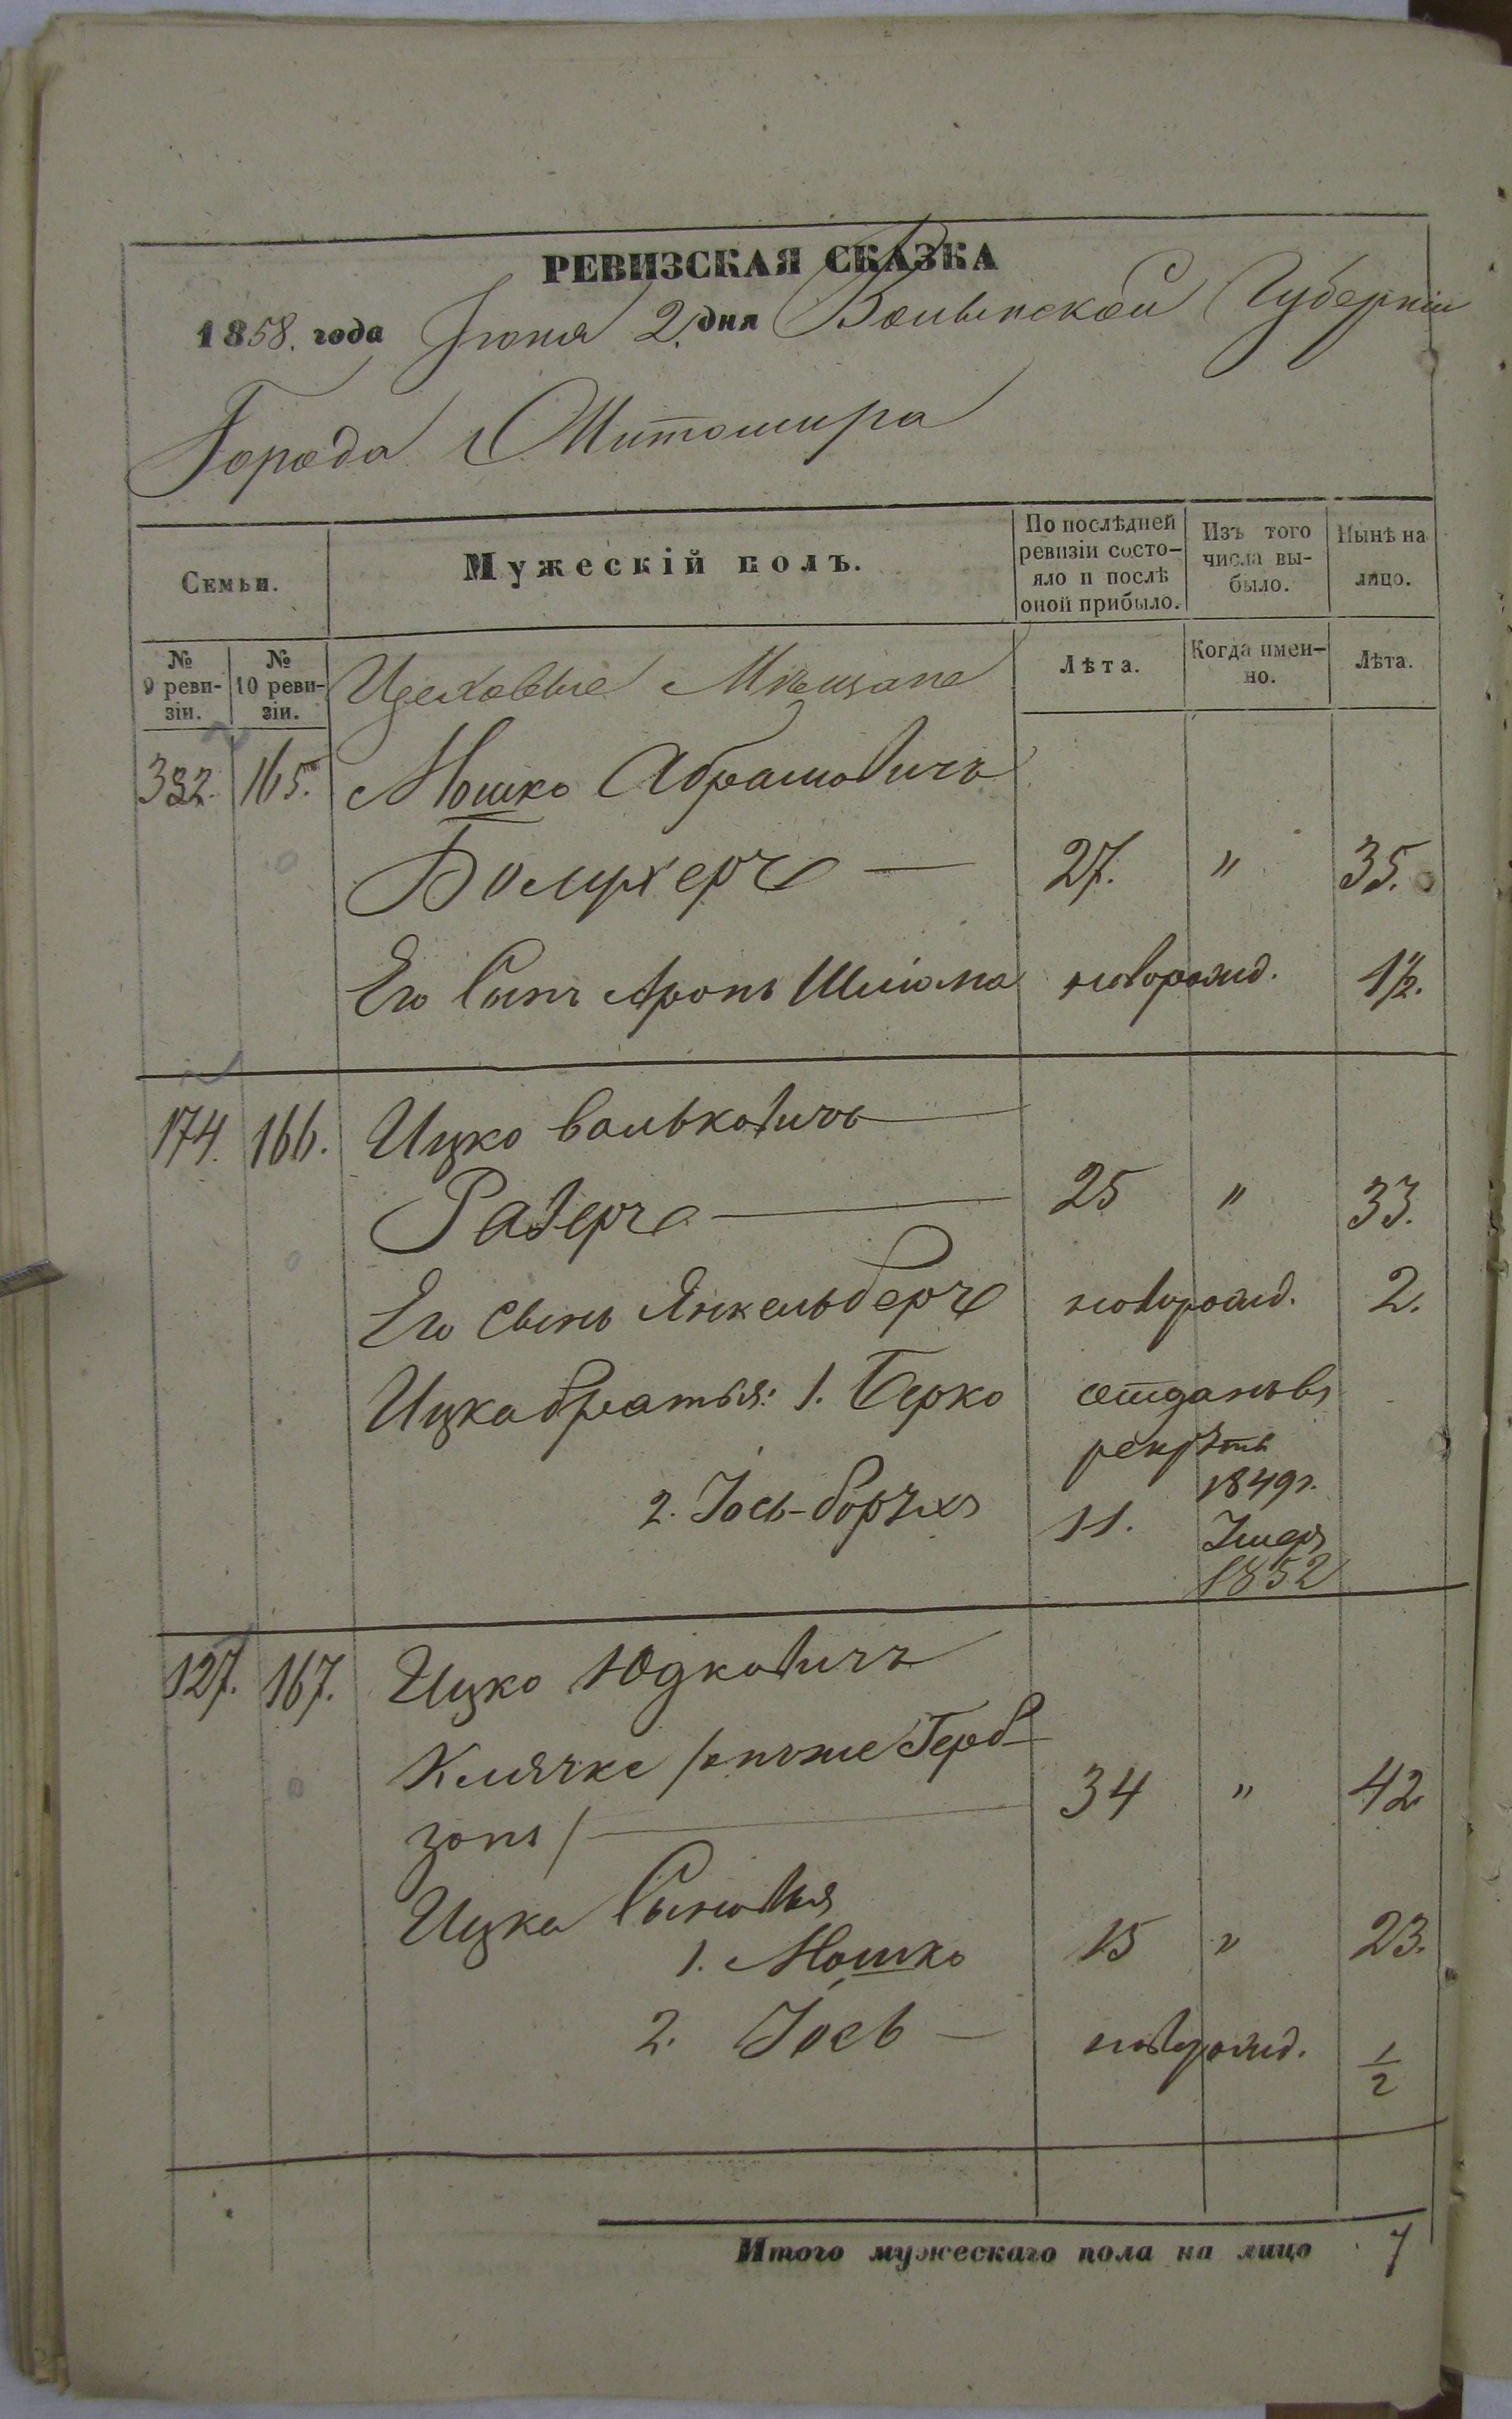 РЕВИЗСКАЯ СКАЗКА
1858. года Іюня 2. дня Волынской Губерніи
Города Житомира
Семьи.
Мужескій полъ.
По послѣдней ревизіи состо-яло и послѣ оной прибыло.
Изъ того числа вы-было.
Нынѣ на лицо.
№ 9 реви-зіи.
№ 10 реви-зіи.
Цеховые Мѣщане
Лѣта.
Когда имен-но.
Лѣта.
165. Мошко Абрамовичъ
27. " 35.
Его Сынъ Аронъ Шлiома новорожд. 1½.
174. 166. Ицко Вольковичъ
25 " 33.
Его сынъ Янкель беръ новорожд. 2.
Ицка братья: 1. Берко отданъ въ
рекруты
1849г.
2. Іось-борухъ 11. Умеръ
1852
127. 167. Ицко Юдковичъ
Клячко /онъ же Герб-
зонъ/ 34 " 42
Ицка Сыновья
1. Мошко 15 " 23.
2. Іось — новорожд. 1/2
Итого мужескаго пола на лицо 7